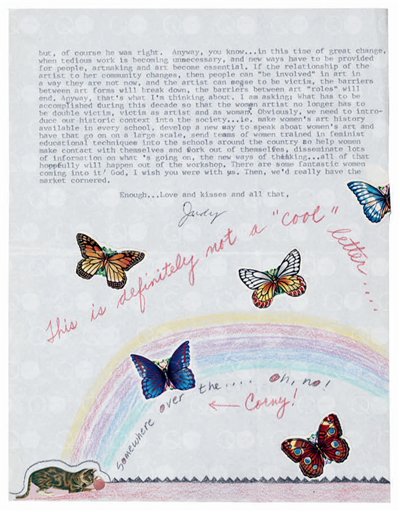 but, of course he was right.  Anyway, you know...in this time of great change,
when tedious work is becoming unnecessary, and new ways have to be provided
for people, artmaking and art become essential. If the relationship of the
artist to her community changes, then people can "be involved" in art in
a way they are not now, and the artist can cease to be victim, the barriers
between art forms will break down, the barriers between art "roles" will
end. Anyway, that's what I'm thinking about. I am asking: what has to be
accomplished during this decade so that the women artist no longer has to
be double victim, victim as artist and as woman. Obviously, we need to intro-
duce our historic context into the society...ie. make women's art history
available in every school, develop a new way to speak about women's art and
have that go on on a large scale, send teams of women trained in feminist
educational techniques into the schools around the country to help women
make contact with themselves and work out of themselves, disseminate lots
of information on what's going on, the new ways of thinking...all of that
hopefully will happen out of the workshop. There are some fantastic women
coming into it! God, I wish you were with us. Then, we'd really have the
market cornered.
Enough...Love and kisses and all that,
Judy
This is definitely not a "cool" letter....
somewhere over the.... oh, no!
← Corny!